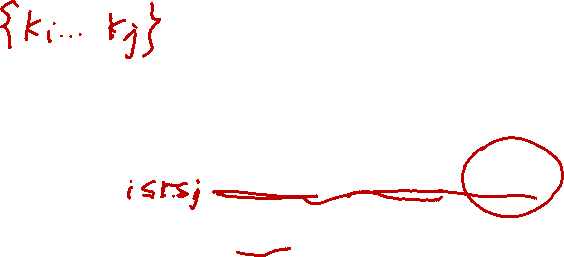 {ki... kj}
i≤r≤j